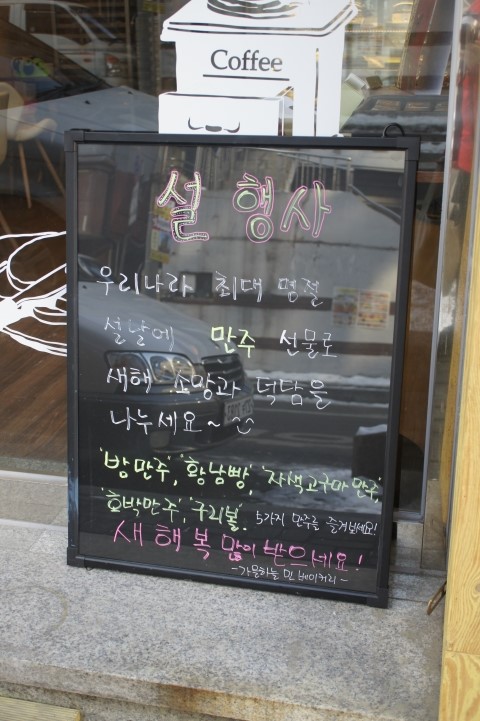 Coffee
설 행사
우리나라 최대 명절
설날에 만주 선물로
새해 소망과 덕담을
나누세요~^^
'밤만주', '황남빵', '자색고구마만주',
'호박만주', '구리볼'. 5가지 만주를 즐겨보세요!
새해 복 많이 받으세요!
-가을하늘 민 베이커리-